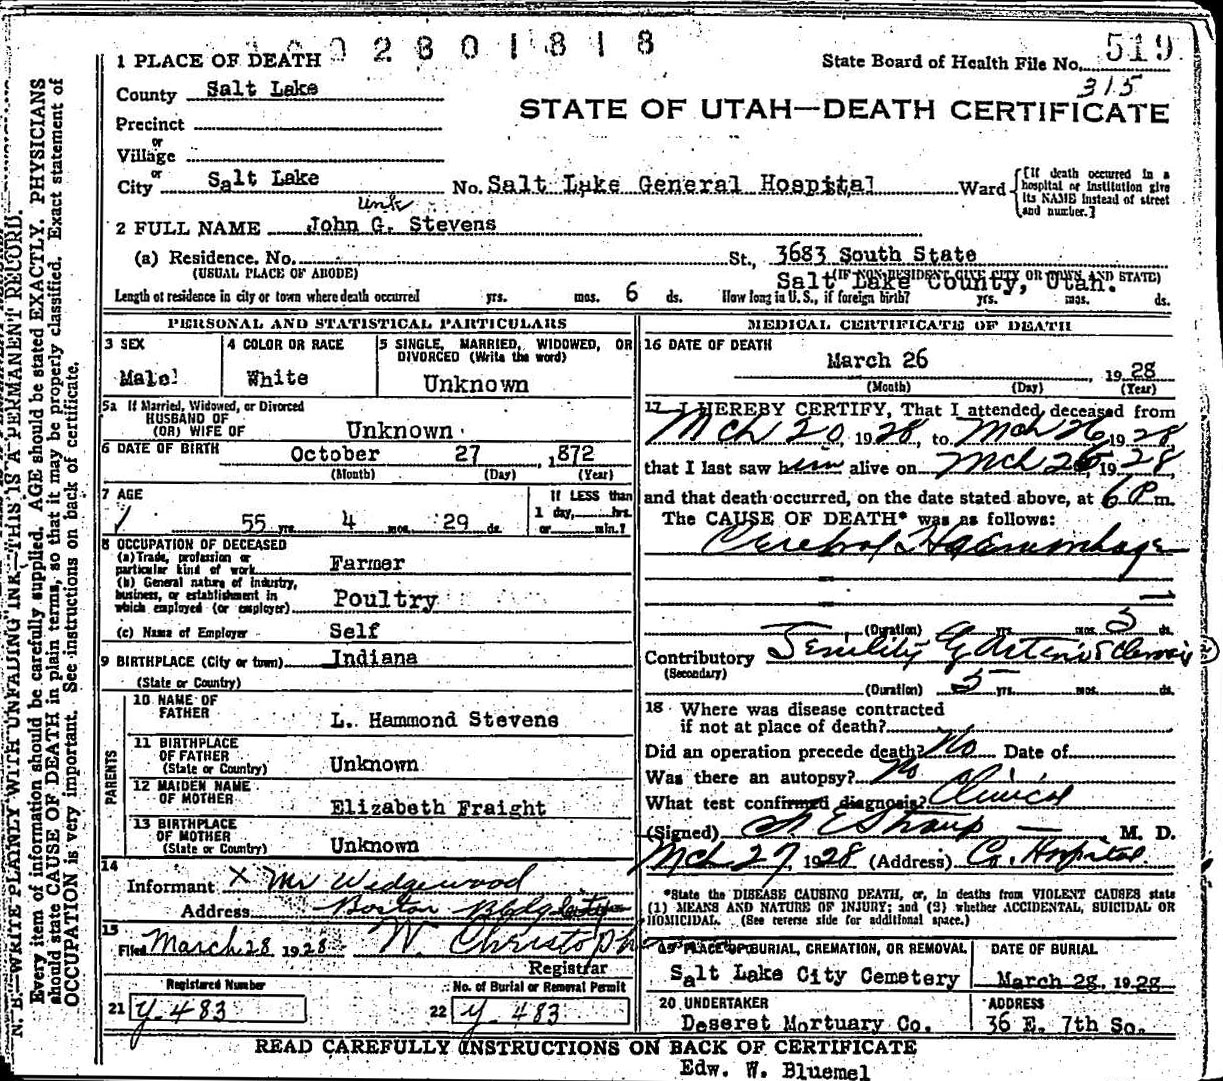 002801818
519
1 PLACE OF DEATH
State Board of Health File No.
315
County Salt Lake
STATE OF UTAH—DEATH CERTIFICATE
Precinct
or
Village
or
City Salt Lake No. Salt Lake General Hospital, Ward
[If death occurred in a hospital or institution give its NAME instead of street and number.]
Unk
2 FULL NAME John G. Stevens
(a) Residence. No. St., 3683 South State
(USUAL PLACE OF ABODE)
(IF NON-RESIDENT GIVE CITY OR TOWN AND STATE)
Salt Lake County, Utah.
Length of residence in city or town where death occurred yrs. mos. 6 ds. How long in U. S., if foreign birth? yrs. mos. ds.
PERSONAL AND STATISTICAL PARTICULARS
3 SEX
Male
4 COLOR OR RACE
White
5 SINGLE, MARRIED, WIDOWED, OR DIVORCED (Write the word)
Unknown
5a If Married, Widowed, or Divorced
HUSBAND OF
(OR) WIFE OF Unknown
6 DATE OF BIRTH October 27, 1872
(Month) (Day) (Year)
7 AGE
55 yrs. 4 mos. 29 ds.
If LESS than
1 day, hrs.
or min.?
8 OCCUPATION OF DECEASED
(a) Trade, profession or particular kind of work Farmer
(b) General nature of industry, business, or establishment in which employed (or employer) Poultry
(c) Name of Employer Self
9 BIRTHPLACE (City or town) Indiana
(State or Country)
PARENTS
10 NAME OF FATHER L. Hammond Stevens
11 BIRTHPLACE OF FATHER
(State or Country) Unknown
12 MAIDEN NAME OF MOTHER Elizabeth Fraight
13 BIRTHPLACE OF MOTHER
(State or Country) Unknown
14
Informant X Mr Wedgewood
Address Boston Bldg City
15
Filed March 28 1928 W. Christoph
Registrar
Registered Number
21 y-483
No. of Burial or Removal Permit
22 y-483
MEDICAL CERTIFICATE OF DEATH
16 DATE OF DEATH
March 26, 1928
(Month) (Day) (Year)
17 I HEREBY CERTIFY, That I attended deceased from
Mch 20, 1928, to Mch 26 1928,
that I last saw him alive on Mch 26, 1928,
and that death occurred, on the date stated above, at 6 P m.
The CAUSE OF DEATH* was as follows:
Cerebral Haemorrhage
(Duration) yrs. mos. 5 ds.
Contributory Senility & Arteriosclerosis
(Secondary)
(Duration) 5 yrs. mos. ds.
18 Where was disease contracted
if not at place of death?
Did an operation precede death? No Date of
Was there an autopsy? No
What test confirmed diagnosis? Clinical
(Signed) M. D.
Mch 27, 1928 (Address) Co. Hospital
*State the DISEASE CAUSING DEATH, or, in deaths from VIOLENT CAUSES state
(1) MEANS AND NATURE OF INJURY; and (2) whether ACCIDENTAL, SUICIDAL OR
HOMICIDAL. (See reverse side for additional space.)
19 PLACE OF BURIAL, CREMATION, OR REMOVAL
Salt Lake City Cemetery
DATE OF BURIAL
March 28, 1928
20 UNDERTAKER
Deseret Mortuary Co.
ADDRESS
36 E. 7th So.
READ CAREFULLY INSTRUCTIONS ON BACK OF CERTIFICATE
Edw. W. Bluemel
N. B.—WRITE PLAINLY WITH UNFADING INK—THIS IS A PERMANENT RECORD.
Every item of information should be carefully supplied. AGE should be stated EXACTLY. PHYSICIANS
should state CAUSE OF DEATH in plain terms, so that it may be properly classified. Exact statement of
OCCUPATION is very important. See instructions on back of certificate.